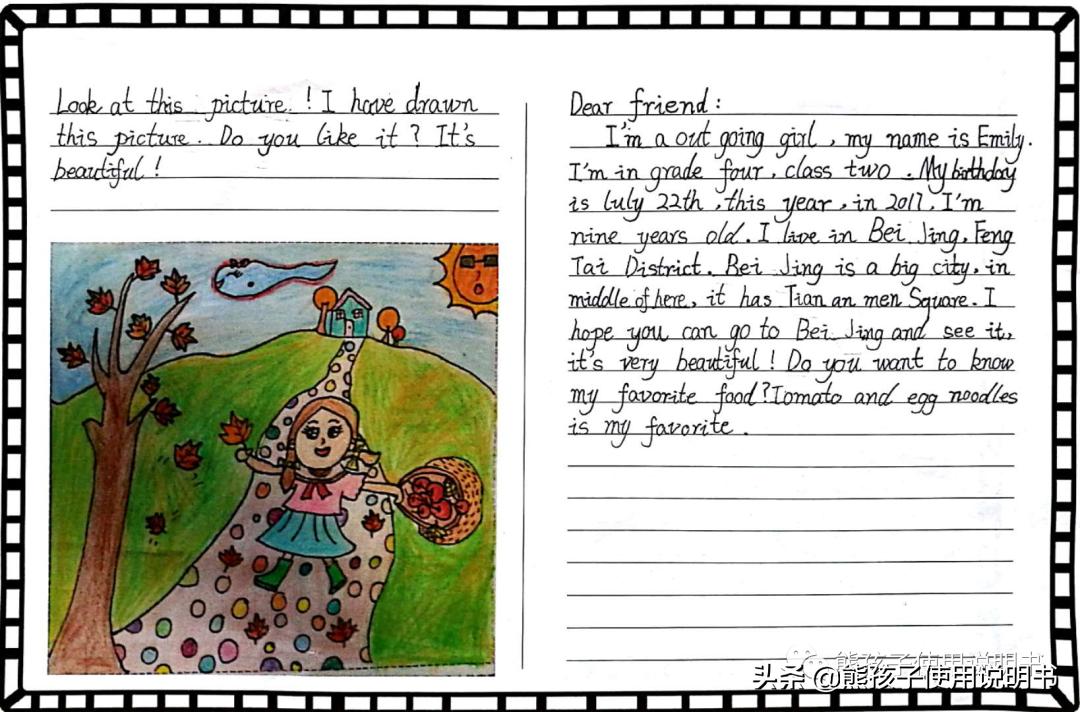 Look at this picture ! I have drawn
this picture. Do you like it ? It's
beautiful !
Dear friend :
I'm a out going girl , my name is Emily.
I'm in grade four , class two . My birthday
is luly 22th , this year , in 2017, I'm
nine years old. I live in Bei Jing, Feng
Tai District. Bei Jing is a big city, in
middle of here, it has Tian an men Square. I
hope you can go to Bei Jing and see it,
it's very beautiful ! Do you want to know
my favorite food? Tomato and egg noodles
is my favorite .
熊孩子使用说明书
头条 @熊孩子使用说明书